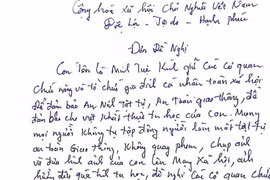 Cộng hoà xã hội Chủ Nghĩa Việt Nam
Độc Lập - Tự do - Hạnh phúc
Đơn Đề Nghị
Con tên là Minh Tuệ Kính gửi Các cơ quan
chức năng và tổ chức gia đình cá nhân toàn xã hội
Để đảm bảo An Ninh trật tự, An Toàn giao thông, để
đảm bảo cho việc khất thực tu học của Con. Mong
mọi người Không tụ tập đông người làm mất trật tự
an toàn Giao thông, Không quay phim, chụp ảnh
và đưa hình ảnh của con lên Mạng Xã hội, ảnh
hưởng đến quá trình tu học, đề nghị Các cơ quan chức